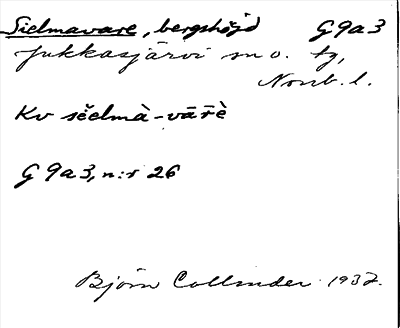 Sielmavare, bergshöjd G9a3
Jukkasjärvi sn o. tg,
Norrb. l.
Kv sĕelmà-vār̄è
G9a3, n:r 26
Björn Collinder 1937.